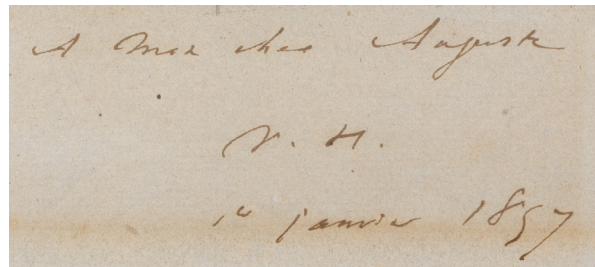 A mon cher Auguste
V. H.
1er janvier 1857